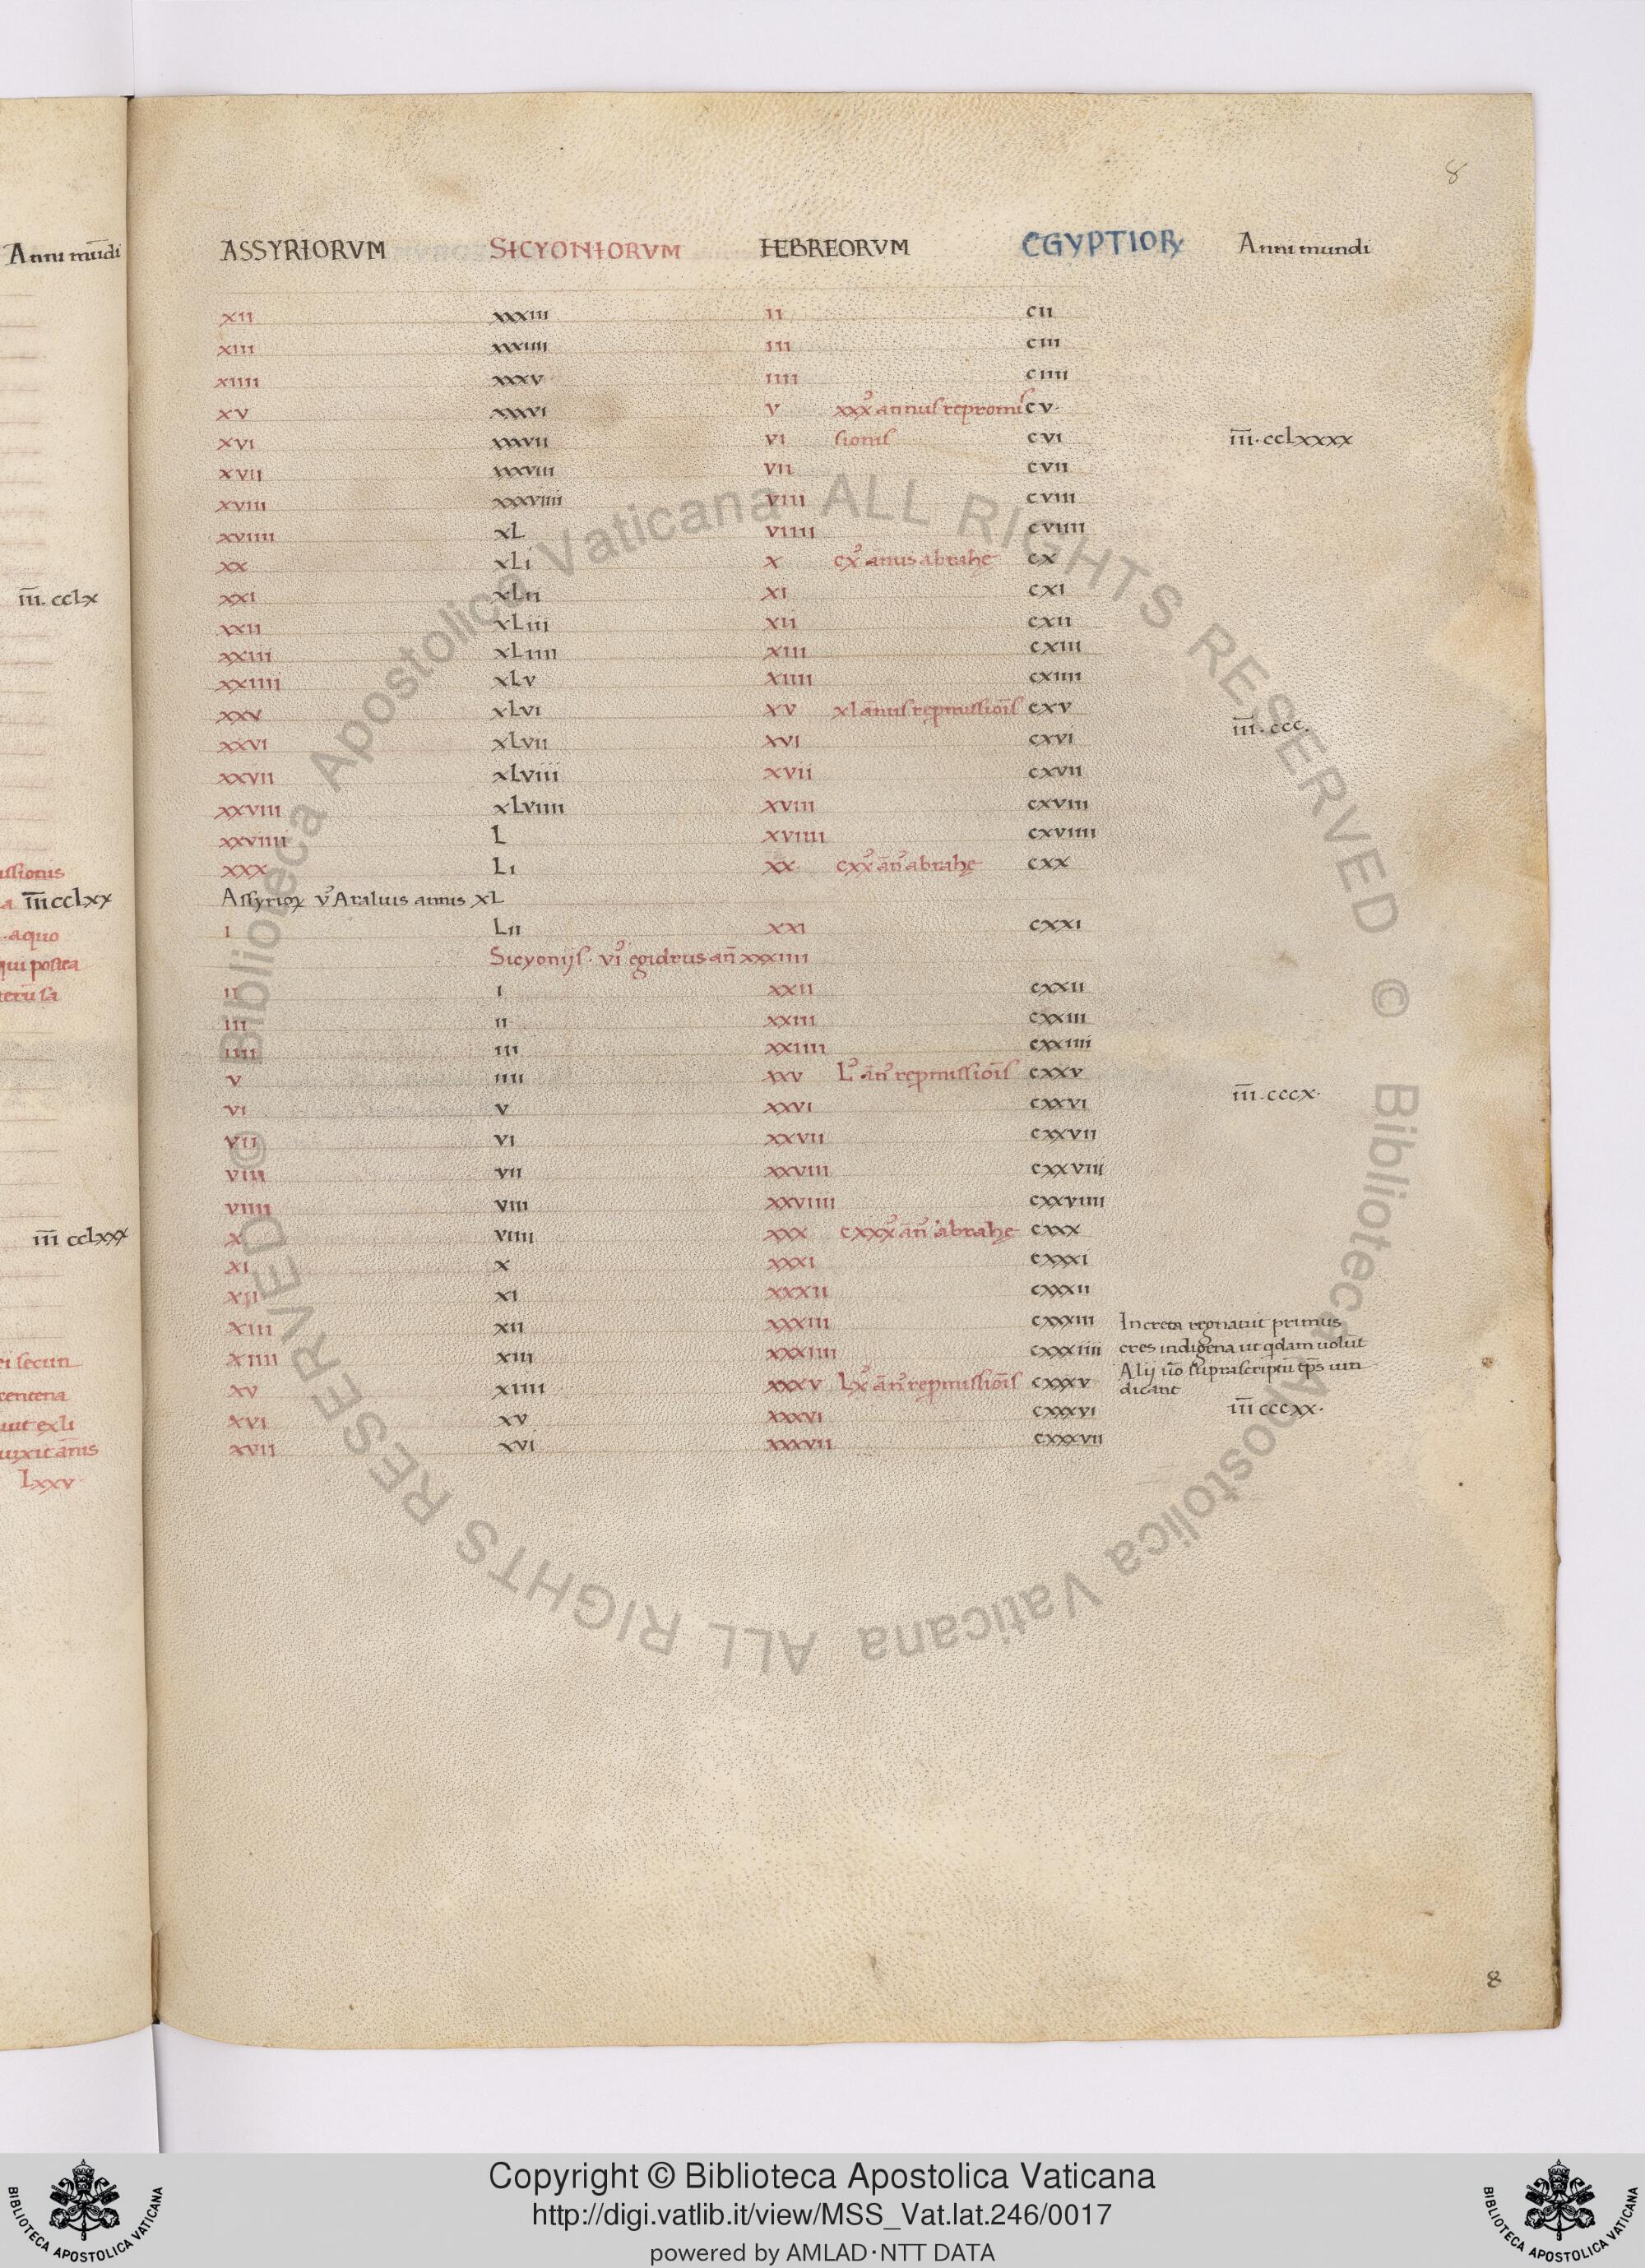 8
Anni mūdi ASSYRIORVM SICYONIORVM HEBREORVM EGYPTIOR Anni mundi
xii xxxiii ii cii
xiii xxxiiii iii ciii
xiiii xxxv iiii ciiii
xv xxxvi v xxx annus repromis cv
xvi xxxvii vi sionis cvi īīī. cclxxxx
xvii xxxviii vii cvii
xviii xxxviiii viii cviii
xviiii xL viiii cviiii
xx xLi x cx anus abrahę cx
īīī. cclx xxi xLii xi cxi
xxii xLiii xii cxii
xxiii xLiiii xiii cxiii
xxiiii xLv xiiii cxiiii
xxv xLvi xv xl ānus repmissiōis cxv
xxvi xLvii xvi cxvi īīī. ccc.
xxvii xLviii xvii cxvii
xxviii xLviiii xviii cxviii
xxviiii L xviiii cxviiii
ussionis xxx Li xx cxx ān abrahę cxx
a īīī cclxx Assyrioꝝ v Aralius annis xL
. aquo i Lii xxi cxxi
qui postea Sicyonijs. vi egidrus an̄ xxxiiii
terū sa ii i xxii cxxii
iii ii xxiii cxxiii
iiii iii xxiiii cxxiiii
v iiii xxv L ān repmissiōis cxxv
vi v xxvi cxxvi īīī. cccx.
vii vi xxvii cxxvii
viii vii xxviii cxxviii
viiii viii xxviiii cxxviiii
īīī cclxxx x viiii xxx cxxx ān abrahę cxxx
xi x xxxi cxxxi
xii xi xxxii cxxxii
xiii xii xxxiii cxxxiii Increta regnauit primus
ei secun xiiii xiii xxxiiii cxxxiiii cres indigena ut qdam uolūt
centena xv xiiii xxxv Lx ān repmissiōis cxxxv Alij ūo suprascriptū tp̄s uin
dicant
xvi xv xxxvi cxxxvi īīī cccxx.
uixit ānis xvii xvi xxxvii cxxxvii
Lxxv
8
© Biblioteca Apostolica Vaticana ALL RIGHTS RESERVED © Biblioteca Apostolica Vaticana ALL RIGHTS RESERVED
Copyright © Biblioteca Apostolica Vaticana
http://digi.vatlib.it/view/MSS_Vat.lat.246/0017
powered by AMLAD·NTT DATA
BIBLIOTECA APOSTOLICA VATICANA
BIBLIOTECA APOSTOLICA VATICANA